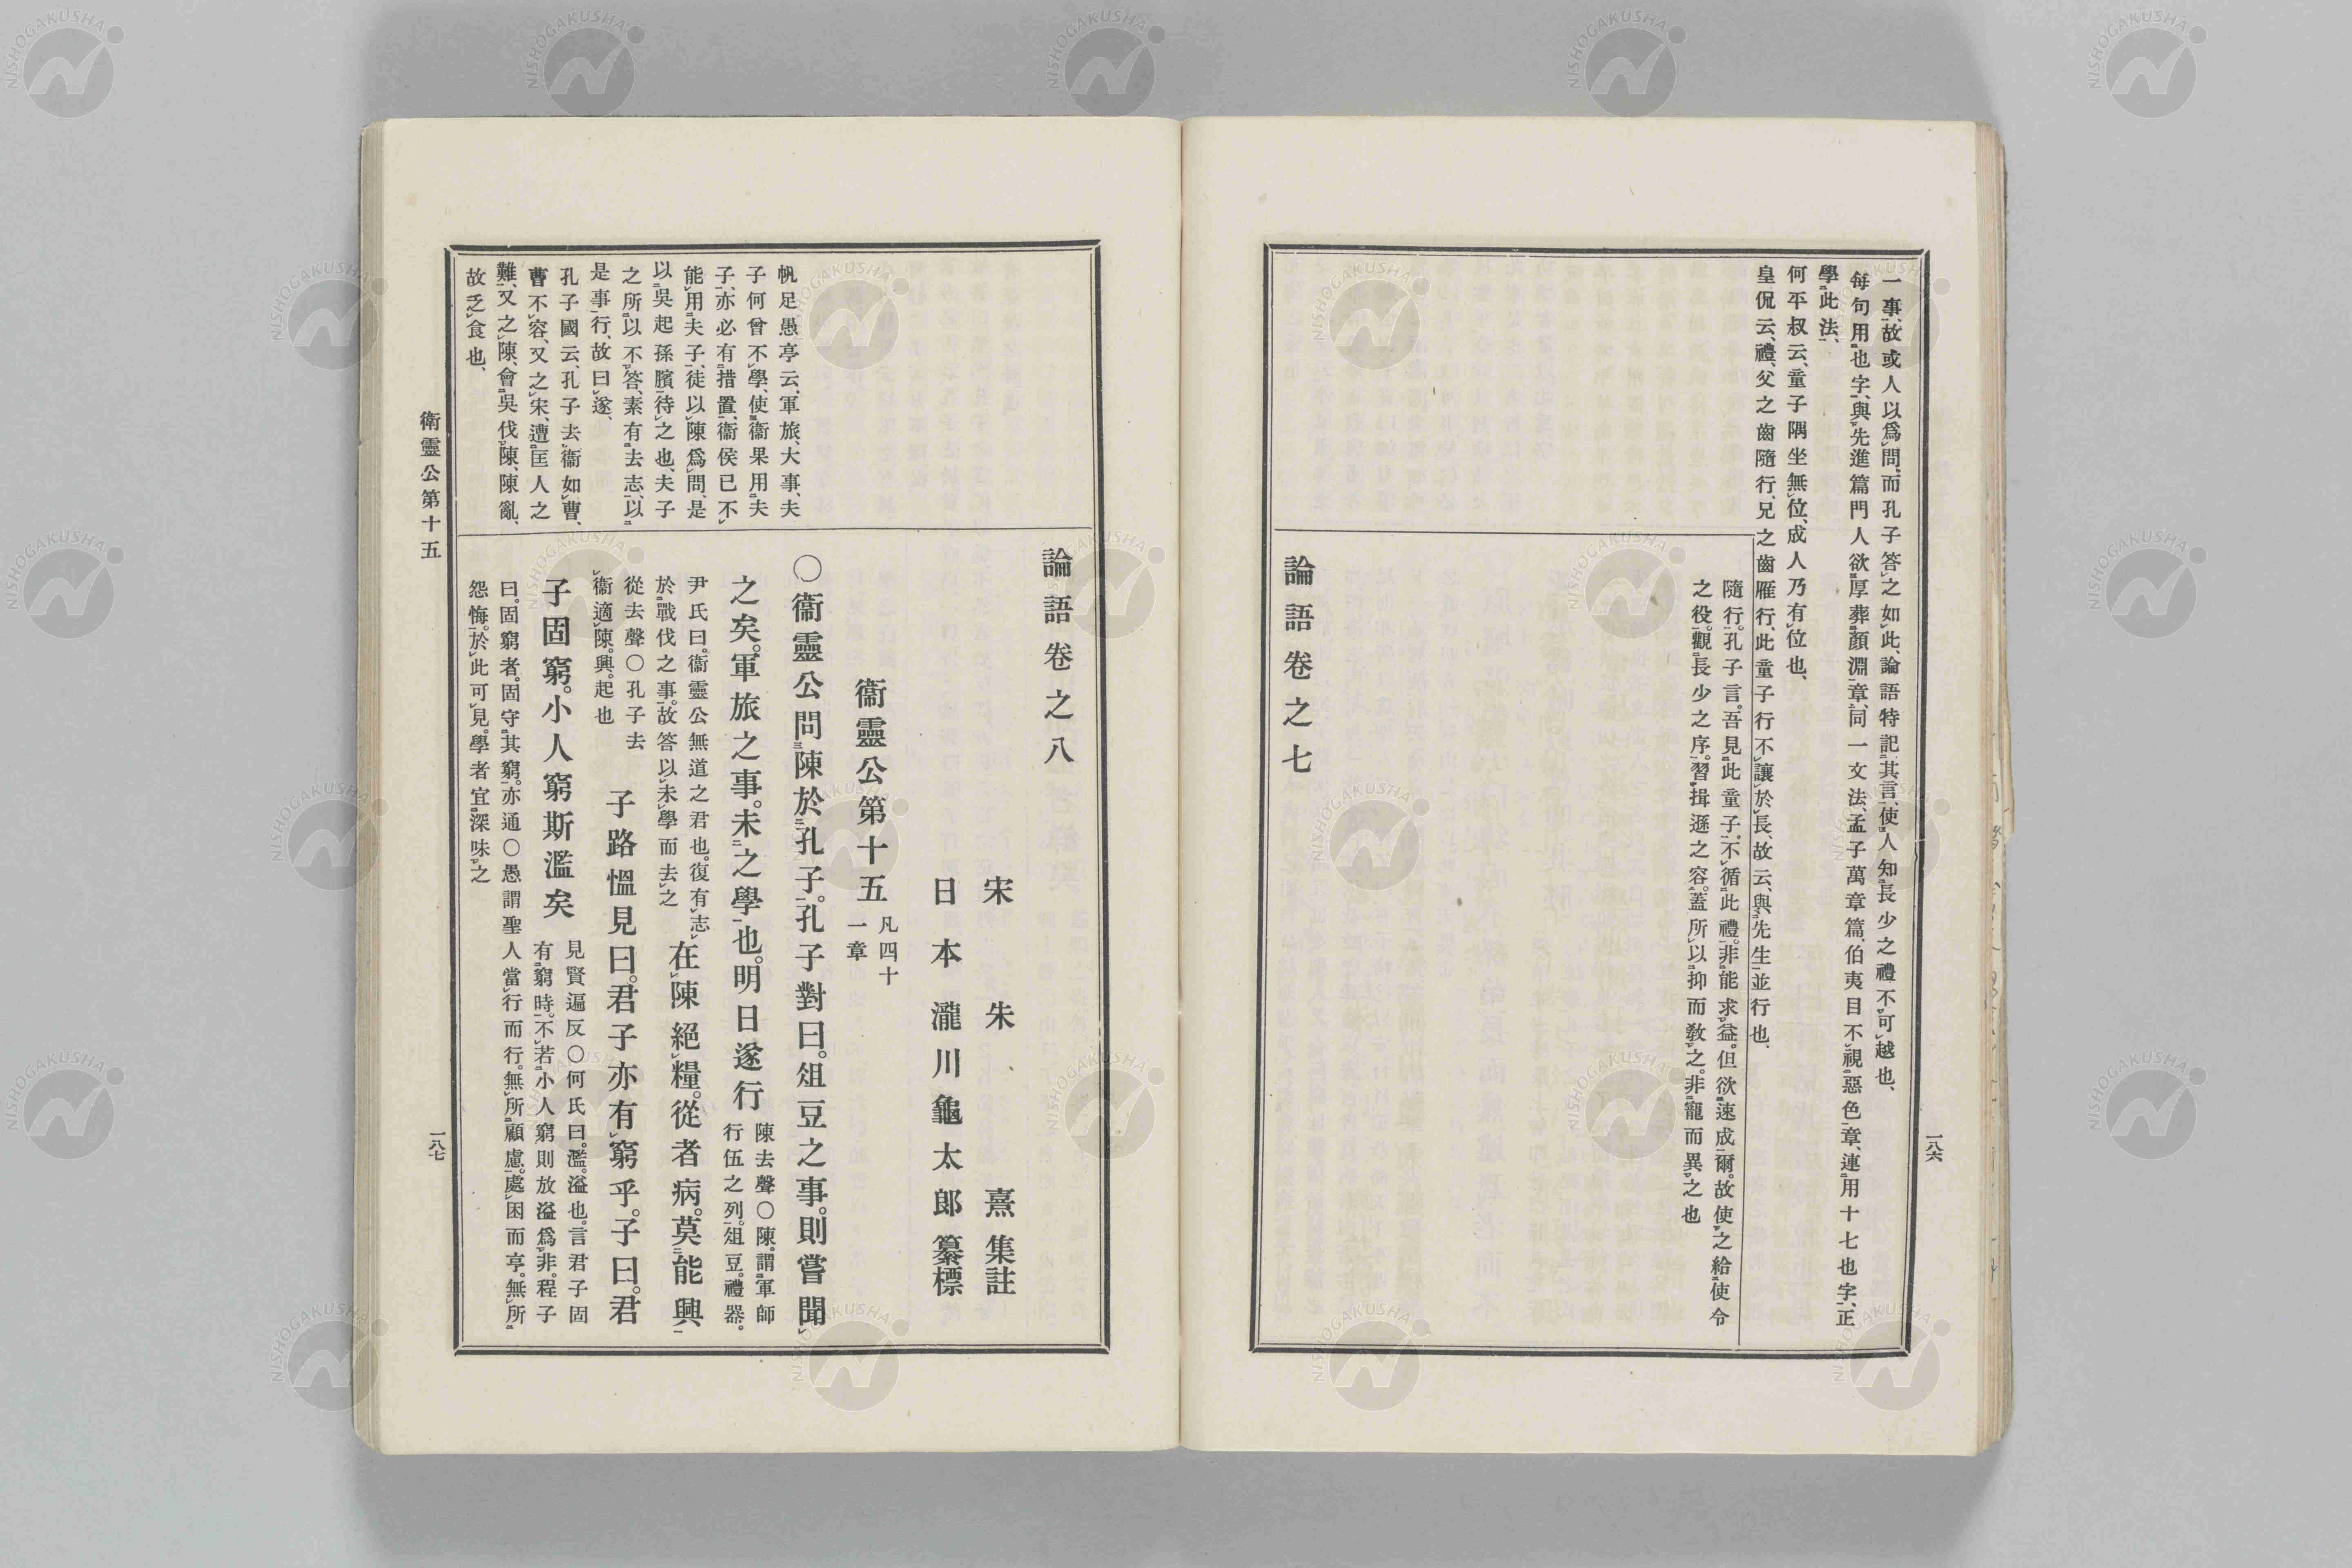 一事、故或人以爲問、而孔子答之如此、論語特記其言、使人知長少之禮不可越也、
每句用也字、與先進篇門人欲厚葬顏淵章、同一文法、孟子萬章篇、伯夷目不視惡色章、連用十七也字、正
學此法、
何平叔云、童子隅坐無位、成人乃有位也、
皇侃云、禮、父之齒隨行、兄之齒雁行、此童子行不讓於長、故云、與先生並行也、
隨行。孔子言。吾見此童子。不循此禮。非能求益。但欲速成爾。故使之給使令
之役。觀長少之序。習揖遜之容。蓋所以抑而敎之。非寵而異之也
論語卷之七
一八六
論語卷之八
宋 朱 熹集註
日本 瀧川龜太郎纂標
衞靈公第十五
凡四十
一章
○衞靈公問陳於孔子。孔子對曰。俎豆之事。則嘗聞
之矣。軍旅之事。未之學也。明日遂行
陳去聲○陳。謂軍師
行伍之列。俎豆。禮器。
尹氏曰。衞靈公無道之君也。復有志
於戰伐之事。故答以未學而去之
在陳絕糧。從者病。莫能興
從去聲○孔子去
衞適陳。興。起也
子路慍見曰。君子亦有窮乎。子曰。君
子固窮。小人窮斯濫矣
見賢遍反○何氏曰。濫。溢也。言君子固
有窮時。不若小人窮則放溢爲非。程子
曰。固窮者。固守其窮。亦通○愚謂聖人當行而行。無所顧慮。處困而亨。無所
怨悔。於此可見。學者宜深味之
帆足愚亭云、軍旅、大事、夫
子何曾不學、使衞果用夫
子、亦必有措置、衞侯已不
能用夫子、徒以陳爲問、是
以吳起孫臏待之也、夫子
之所以不答、素有去志、以
是事行、故曰遂、
孔子國云、孔子去衞如曹、
曹不容、又之宋、遭匡人之
難、又之陳、會吳伐陳、陳亂、
故乏食也、
衞靈公第十五
一八七
NISHOGAKUSHA